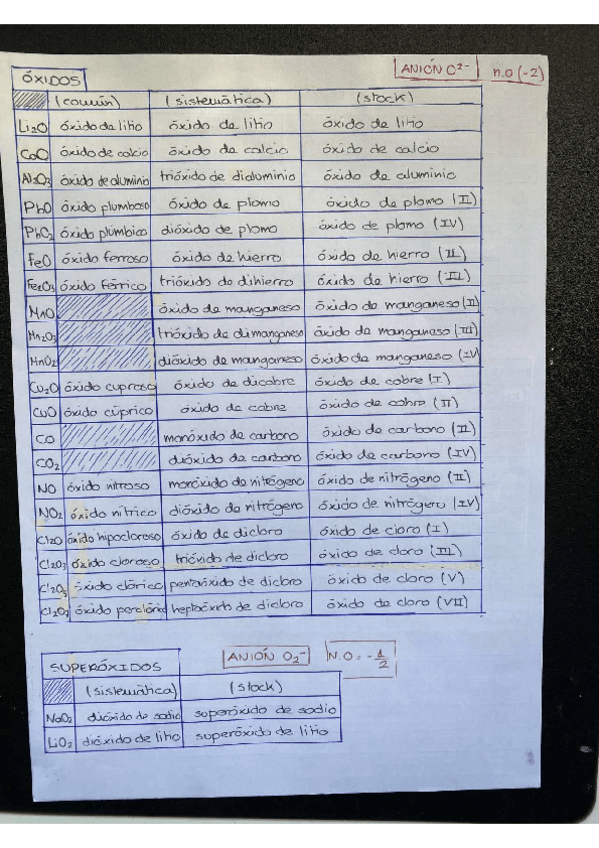 ÓXIDOS ANIÓN O²⁻ n.o (-2)
(común) (sistemática) (stock)
Li₂O óxido de litio óxido de litio óxido de litio
CaO óxido de calcio óxido de calcio óxido de calcio
Al₂O₃ óxido de aluminio trióxido de dialuminio óxido de aluminio
PbO óxido plumboso óxido de plomo óxido de plomo (II)
PbO₂ óxido plúmbico dióxido de plomo óxido de plomo (IV)
FeO óxido ferroso óxido de hierro óxido de hierro (II)
Fe₂O₃ óxido férrico trióxido de dihierro óxido de hierro (III)
MnO óxido de manganeso óxido de manganeso (II)
Mn₂O₃ trióxido de dimanganeso óxido de manganeso (III)
MnO₂ dióxido de manganeso óxido de manganeso (IV)
Cu₂O óxido cuproso óxido de dicobre óxido de cobre (I)
CuO óxido cúprico óxido de cobre óxido de cobre (II)
CO monóxido de carbono óxido de carbono (II)
CO₂ dióxido de carbono óxido de carbono (IV)
NO óxido nitroso monóxido de nitrógeno óxido de nitrógeno (II)
NO₂ óxido nítrico dióxido de nitrógeno óxido de nitrógeno (IV)
Cl₂O óxido hipocloroso óxido de dicloro óxido de cloro (I)
Cl₂O₃ óxido cloroso trióxido de dicloro óxido de cloro (III)
Cl₂O₅ óxido clórico pentaóxido de dicloro óxido de cloro (V)
Cl₂O₇ óxido perclórico heptaóxido de dicloro óxido de cloro (VII)
SUPERÓXIDOS ANIÓN O₂⁻ N.O = -1/2
(sistemática) (stock)
NaO₂ dióxido de sodio superóxido de sodio
LiO₂ dióxido de litio superóxido de litio